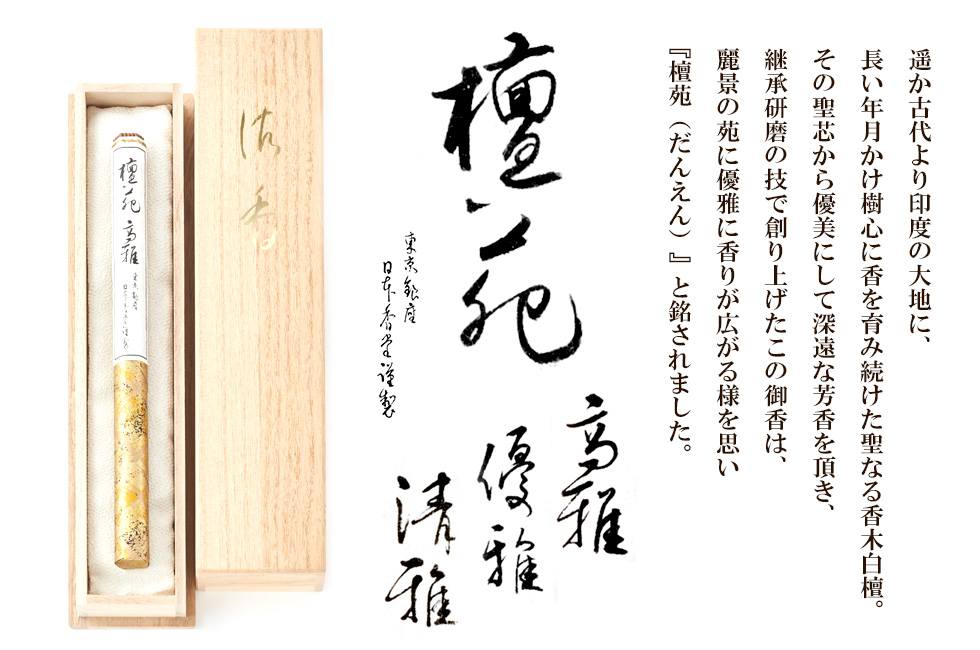 遥か古代より印度の大地に、
長い年月かけ樹心に香を育み続けた聖なる香木白檀。
その聖芯から優美にして深遠な芳香を頂き、
継承研磨の技で創り上げたこの御香は、
麗景の苑に優雅に香りが広がる様を思い
『檀苑（だんえん）』と銘されました。
檀苑
高雅
優雅
清雅
東京銀座
日本香堂謹製
檀苑
高雅
東京銀座
日本香堂謹製